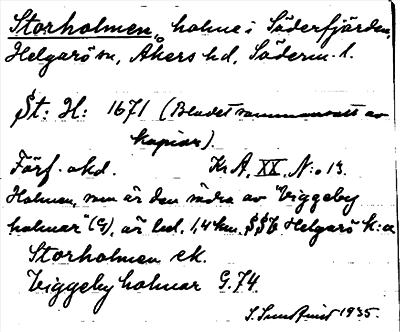 Storholmen, holme i Söderfjärden,
Helgarö sn, Åkers hd, Söderm. l.
St. H: 1671 (Bladet sammansatt av
kopior).
Förf. okd. KrA, XX, N:o 13.
Holmen, som är den södra av "Viggeby
holmar" (G), är bel. 1,4 km. SSV Helgarö k:a
Storholmen ek.
Viggeby holmar G. 74.
1935.